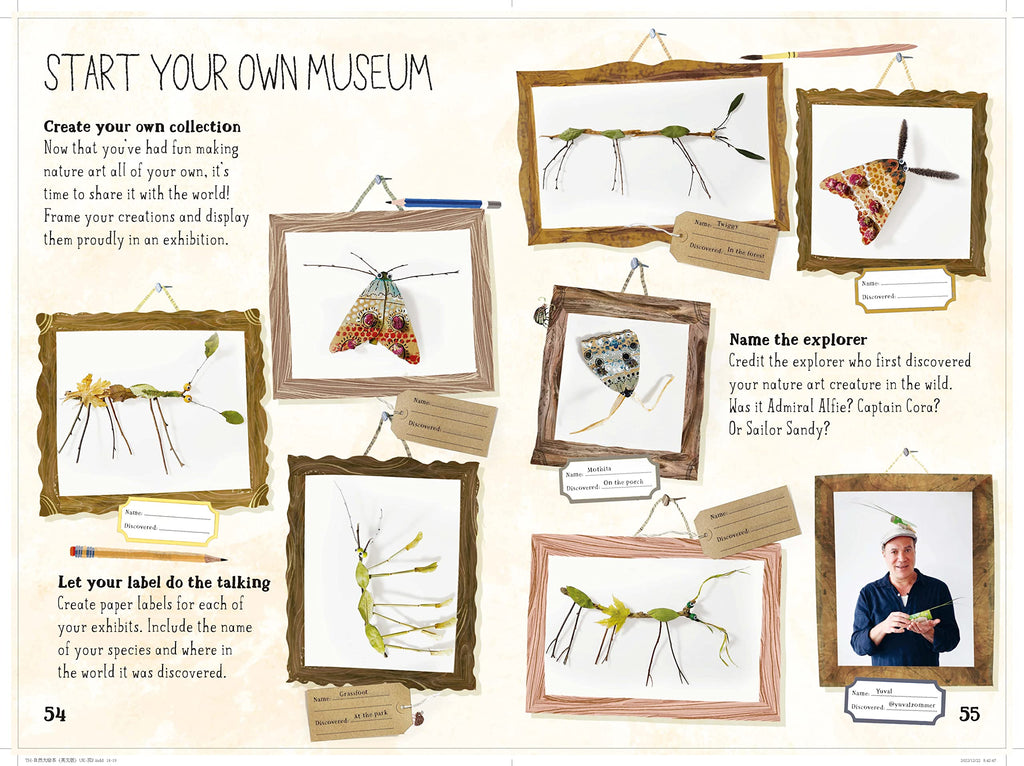 START YOUR OWN MUSEUM
Create your own collection
Now that you've had fun making
nature art all of your own, it's
time to share it with the world!
Frame your creations and display
them proudly in an exhibition.
Name:
Discovered:
Name:
Discovered:
Let your label do the talking
Create paper labels for each of
your exhibits. Include the name
of your species and where in
the world it was discovered.
Name: Grassfoot
Discovered: At the park
54
Name: Twiggy
Discovered: In the forest
Name:
Discovered:
Name the explorer
Credit the explorer who first discovered
your nature art creature in the wild.
Was it Admiral Alfie? Captain Cora?
Or Sailor Sandy?
Name: Mothita
Discovered: On the porch
Name:
Discovered:
Name: Yuval
Discovered: @yuvalzommer
55